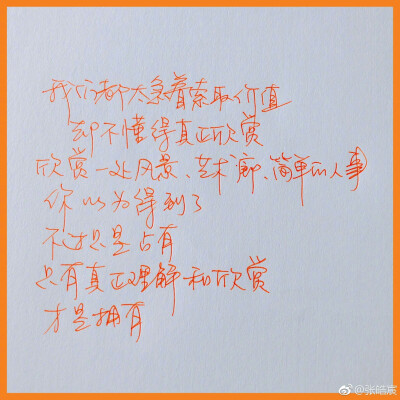 我们都太急着索取价值
却不懂得真正欣赏
欣赏一处风景、艺术廊、简单的人事
你以为得到了
不过只是占有
只有真正理解和欣赏
才是拥有
@张皓宸